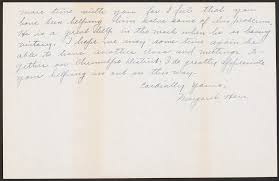 more time with you for I feel that you
have been helping them solve some of this problem.
He is a great help in the work when he is being
I hope we may some time again be
able to have another class and nothings to
gether on District. I do greatly appreciate
your helping us out in this way.
Cordially yours,
Margaret